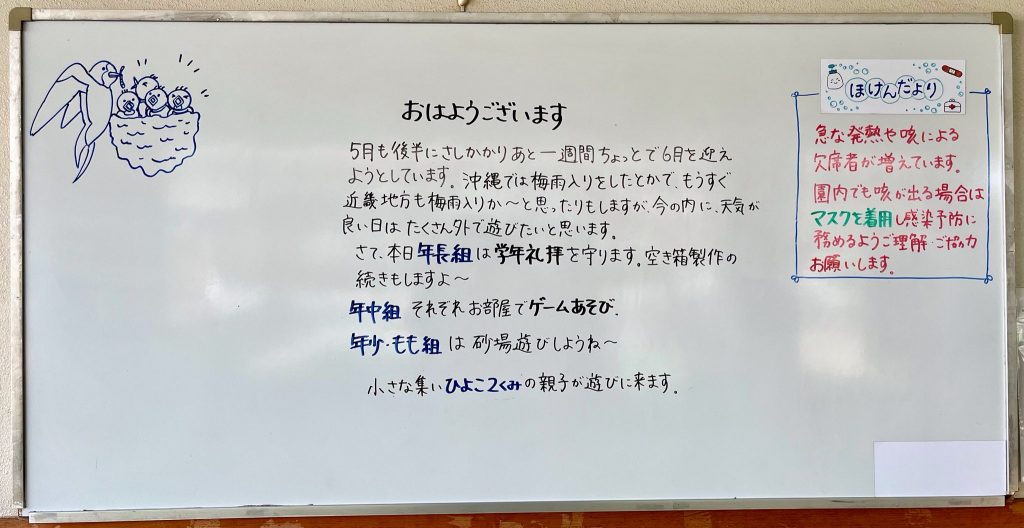 おはようございます
5月も後半にさしかかりあと一週間ちょっとで6月を迎え
ようとしています。沖縄では梅雨入りをしたとかで、もうすぐ
近畿地方も梅雨入りか〜と思ったりもしますが、今の内に、天気が
良い日は たくさん外で遊びたいと思います。
さて、本日 年長組 は 学年礼拝 を守ります。空き箱製作の
続きもしますよ〜
年中組 それぞれお部屋でゲームあそび.
年少・もも組 は 砂場遊びしようね〜
小さな集い ひよこ2くみの親子が遊びに来ます。
ほけんだより
急な発熱や咳による
欠席者が増えています。
園内でも咳が出る場合は
マスクを着用し感染予防に
務めるようご理解・ご協力
お願いします。